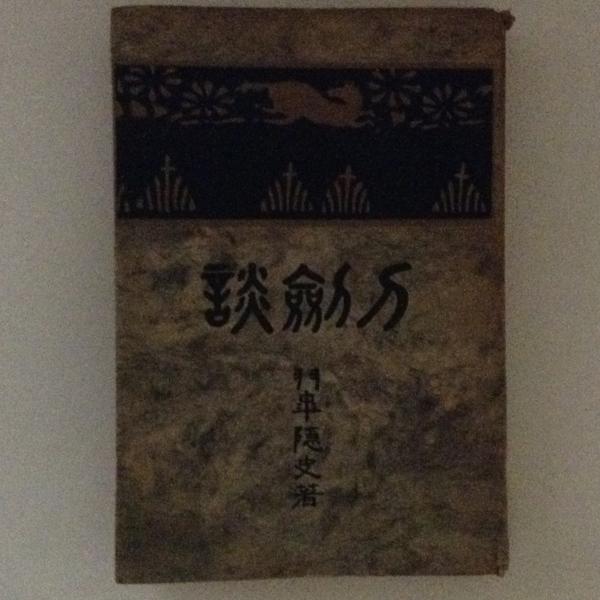 刀劍談
羽皐隠史著